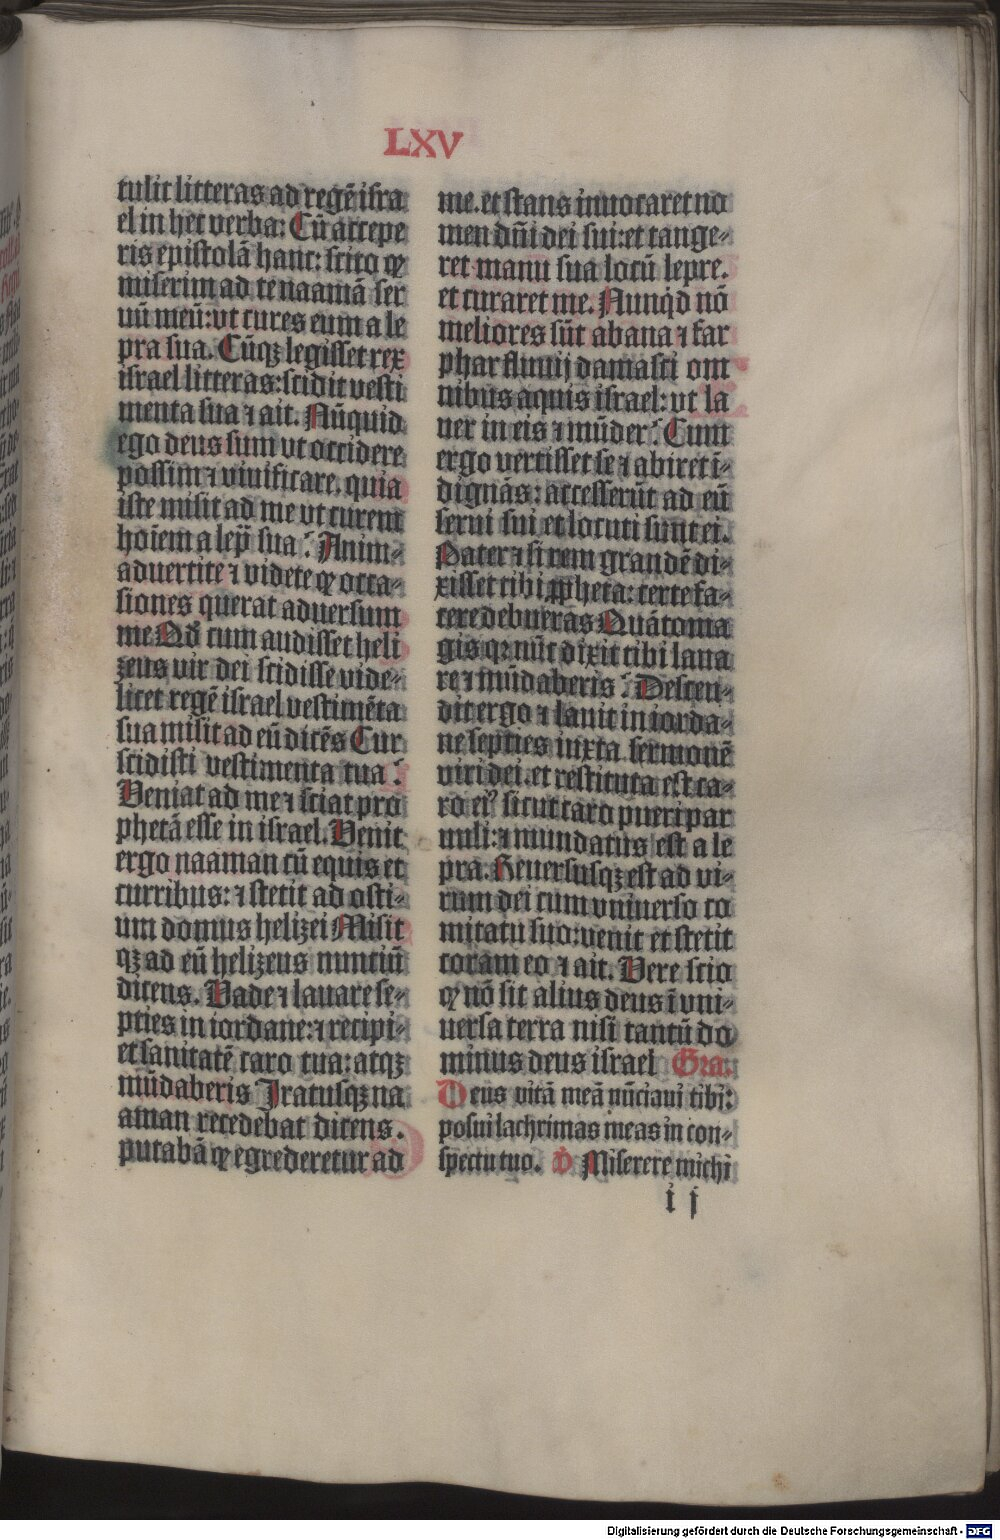 LXV
tulit litteras ad regē isra
el in hec verba: Cū accepe
ris epistolā hanc: scito qꝫ
miserim ad te naamā ser
uū meū: vt cures eum a le
pra sua. Cūqꝫ legisset rex
israel litteras: scidit vesti
menta sua ⁊ ait. Nūquid
ego deus sum vt occidere
possim ⁊ viuificare. quia
iste misit ad me vt curem
hoīem a lep̄ sua? Anim-
aduertite ⁊ videte qꝫ occa-
siones querat aduersum
me Qd̄ cum audisset heli
zeus vir dei scidisse vide-
licet regē israel vestimēta
sua misit ad eū dicēs Cur
scidisti vestimenta tua?
Veniat ad me ⁊ sciat pro
phetā esse in israel. Venit
ergo naaman cū equis et
curribus: ⁊ stetit ad osti-
um domus helizei Misit
qꝫ ad eū helizeus nuntiū
dicens. Vade ⁊ lauare se-
pties in iordane: ⁊ recipi-
et sanitatē caro tua: atqꝫ
mūdaberis Iratusqꝫ na
aman recedebat dicens.
putabā qꝫ egrederetur ad
me. et stans inuocaret no
men dn̄i dei sui: et tange-
ret manu sua locū lepre.
et curaret me. Nunq̇d nō
meliores sūt abana ⁊ far
phar fluuij damasci om
nibus aquis israel: vt la
uer in eis ⁊ mūder? Cum
ergo vertisset se ⁊ abiret ī-
dignās: accesserūt ad eū
serui sui et locuti sunt ei.
Pater ⁊ si rem grandē di-
xisset tibi ꝓpheta: certe fa-
cere debueras Quātoma
gis qꝛ nūc dixit tibi laua
re ⁊ mūdaberis? Descen-
dit ergo ⁊ lauit in iorda-
ne septies iuxta sermonē
viri dei. et restituta est ca-
ro eiꝰ sicut caro pueri par
uuli: ⁊ mundatus est a le
pra. Reuersusqꝫ est ad vi-
rum dei cum vniuerso co
mitatu suo: venit et stetit
coram eo ⁊ ait. Vere scio
qꝫ nō sit alius deus ī vni-
uersa terra nisi tantū do
minus deus israel Gra.
Deus vitā meā nūciaui tibi:
posui lachrimas meas in con-
spectu tuo. V̄ Miserere michi
i j
Digitalisierung gefördert durch die Deutsche Forschungsgemeinschaft - DFG